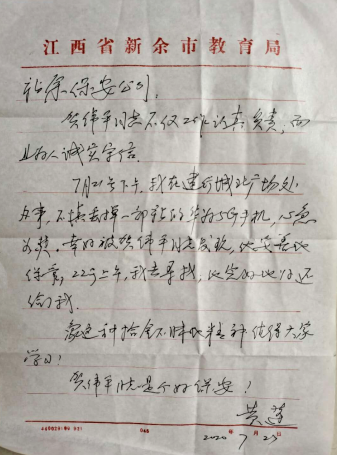 江西省新余市教育局
新余保安公司:
贺伟平同志不仅工作认真负责,而
且为人诚实守信.
7月21号下午,我在建行城北广场处
办事,不慎丢掉一部新的华为5G手机,心急
如焚.幸好被贺伟平同志发现,他妥善地
保管,22号上午,我去寻找,他完好地归还
给了我.
这种拾金不昧的精神值得大家
学习!
贺伟平同志是个好保安!
黄莲
年 月 日
2020 7 23